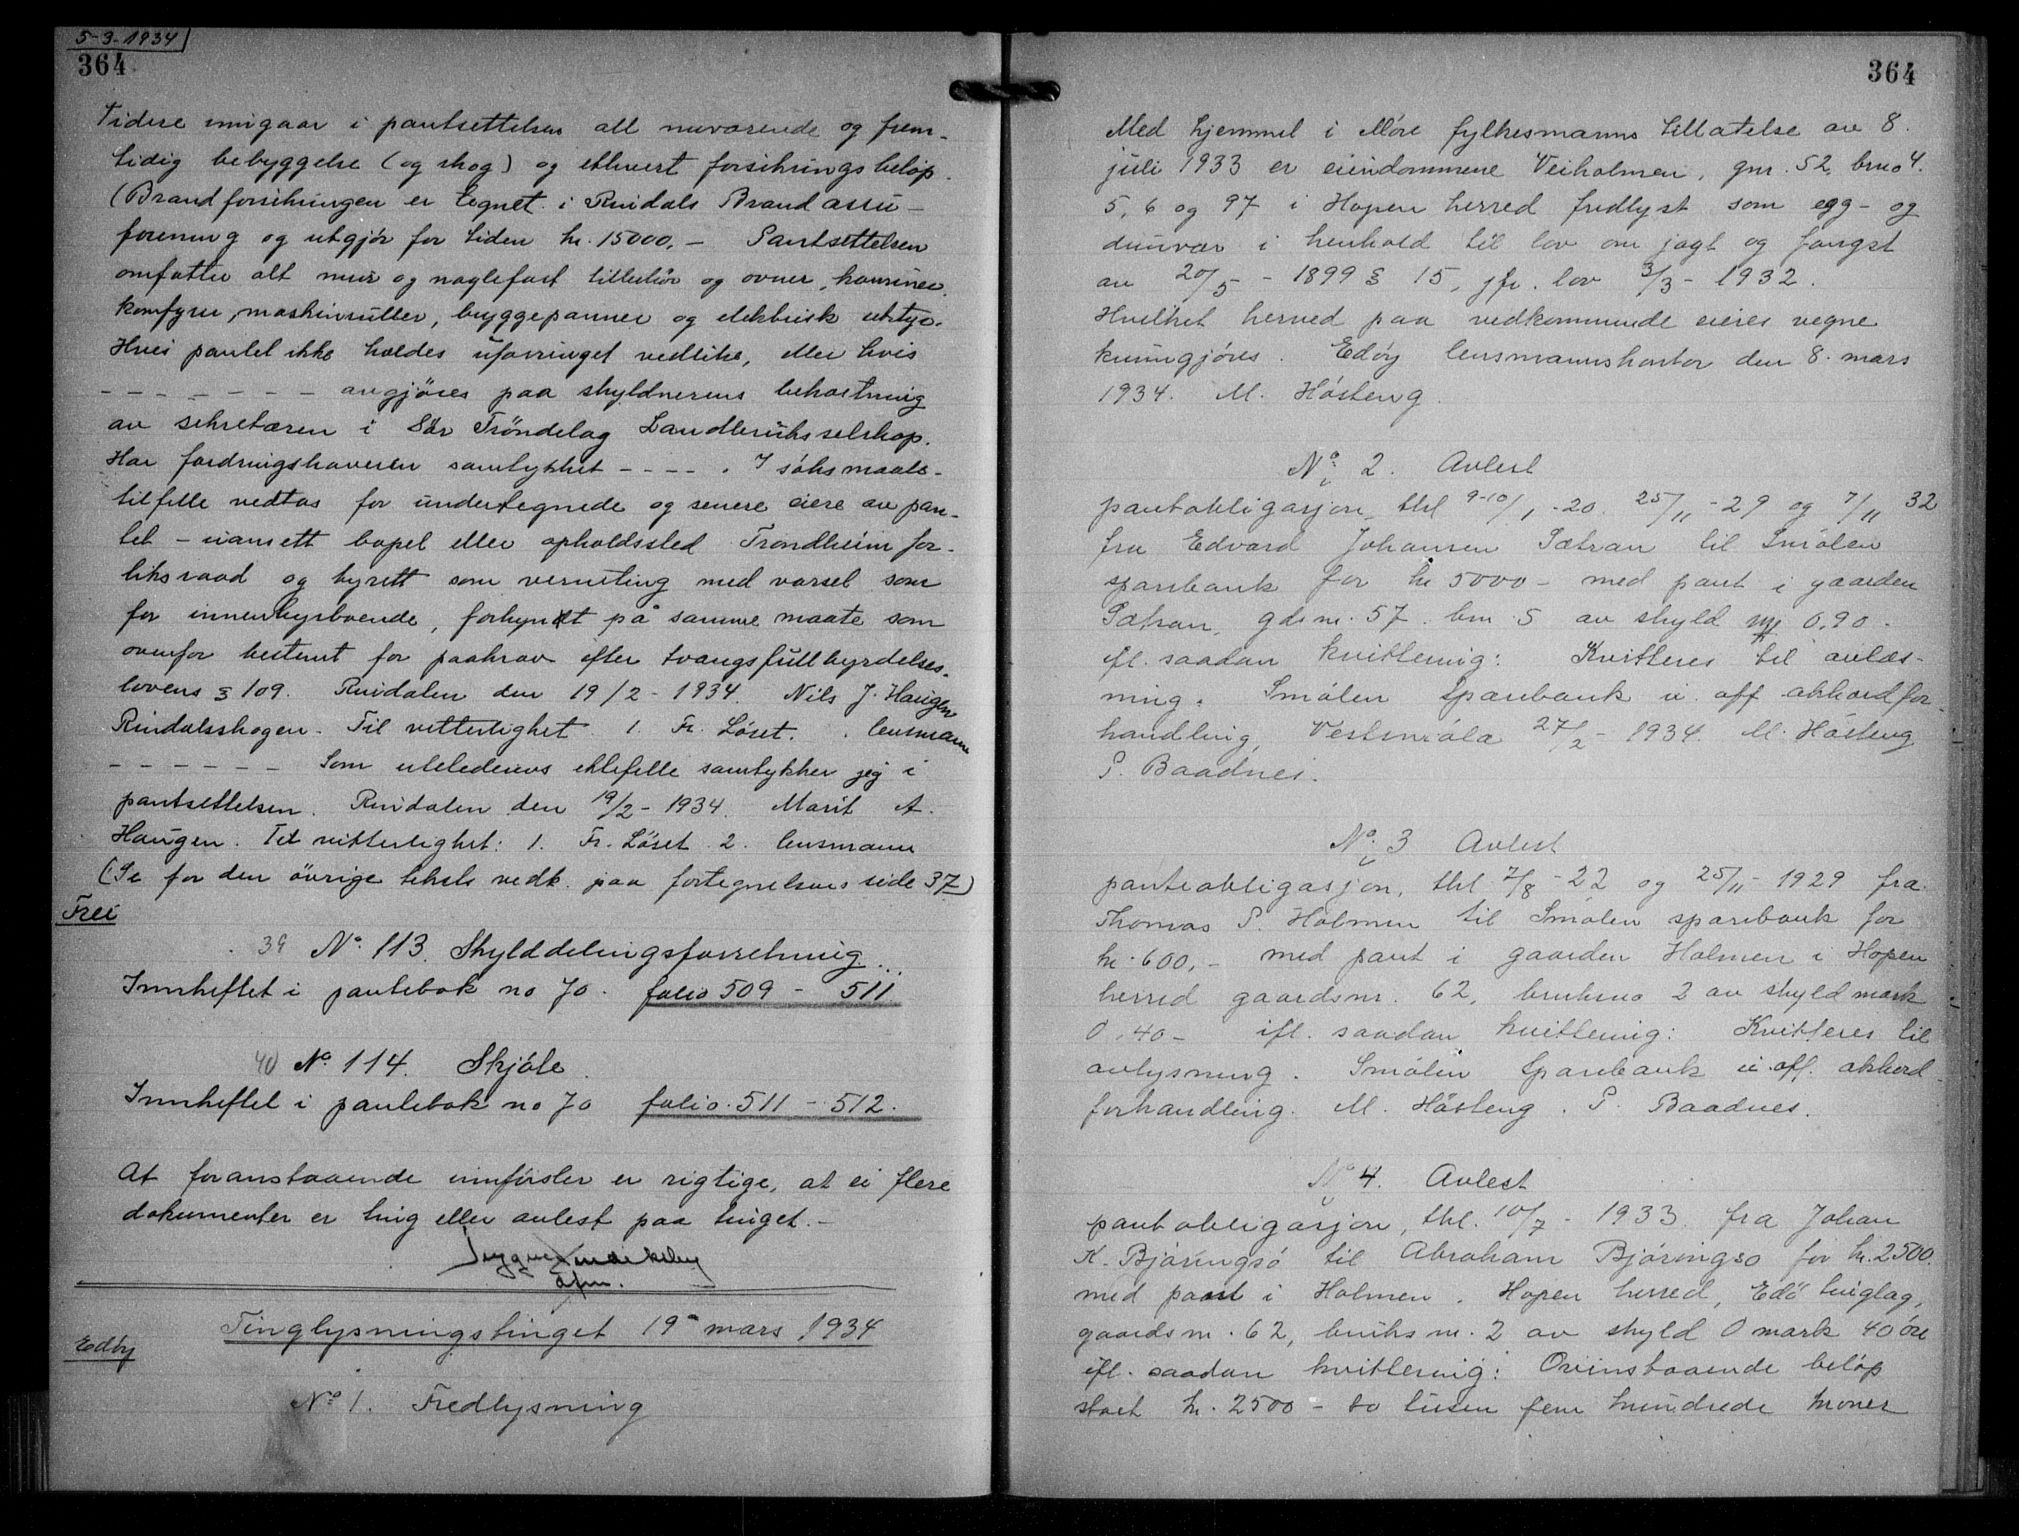 5-3-1934
364
Videre inngaar i pantsettelsen all nuværende og frem-
tidig bebyggelse (og skog) og ethvert forsikringsbeløp.
(Brandforsikringen er tegnet i Rindals Brandassu-
forening og utgjør for tiden kr. 15000,- Pantsettelsen
omfatter alt mur og naglefast tilbehør og ovner, kaminer,
komfyrer, maskinruller, bryggepanner og elektrisk utstyr.
Hvis pantet ikke holdes uforringet vedlike, eller hvis
- - - - - - - avgjøres paa skyldnerens bekostning
av sekretæren i Sør Trøndelag Landbruksselskap.
Har fordringshaveren samtykket - - - - . I søksmaals-
tilfelle vedtas for undertegnede og senere eiere av pan-
tet - uansett bopel eller opholdssted Trondheim for-
liksraad og byrett som verneting med varsel som
for innenbysboende, forkynt på samme maate som
ovenfor bestemt for paakrav efter tvangsfullbyrdelses-
lovens § 109. Rindalen den 19/2 - 1934. Nils J. Haugen
Rindalsskogen. Til vitterlighet 1. Fr. Løset. . lensmann
- - - - - - Som utstederens ektefelle samtykker jeg i
pantsettelsen. Rindalen den 19/2 - 1934. Marit A.
Haugen. Til vitterlighet: 1. Fr. Løset 2. lensmann
(Se for den øvrige teksts vedk. paa fortegnelsens side 37)
Frei
39 No. 113. Skylddelingsforretning...
Innheftet i pantebok no 70. folio 509 - 511
40 No. 114. Skjøte.
Innheftet i pantebok no 70 folio. 511 - 512.
At foranstaaende innførsler er rigtige, at ei flere
dokumenter er ting eller avlest paa tinget.-
Edøy
Tinglysningstinget 19de mars 1934
No 1. Fredlysning
364
Med hjemmel i Møre fylkesmanns tillatelse av 8.
juli 1933 er eiendommene Veiholmen, gnr. 52, brno 4.
5, 6 og 97 i Hopen herred fredlyst som egg- og
dunvær i henhold til lov om jagt og fangst
av 20/5 - 1899 § 15, jfr. lov 3/3 - 1932.
Hvilket herved paa vedkommende eieres vegne
kunngjøres. Edøy lensmannskontor den 8. mars
1934. M. Høsteng.
No. 2. Avlest
pantobligasjon, thl 9-10/1 - 20. 25/11 - 29 og 7/11 32
fra Edvard Johansen Sætran til Smølen
sparebank for kr 5000 - med pant i gaarden
Sætran, gdsnr. 57. brn 5 av skyld mk 0,90 -
ifl. saadan kvittering: Kvitteres til avlæs-
ning. Smølen Sparebank u. off. akkordfor-
handling, Vestsmøla 27/2 - 1934. M. Høsteng
P. Baadnes.
No. 3 Avlest
panteobligasjon, thl 7/8 - 22 og 25/11 - 1929 fra
Thomas P. Holmen til Smølen sparebank for
kr. 600,- med pant i gaarden Holmen i Hopen
herred gaardsnr. 62, bruksno 2 av skyld mark
0,40 - ifl. saadan kvittering: Kvitteres til
avlysning. Smølen Sparebank u. off. akkord
forhandling. M Høsteng. P. Baadnes.
No 4. Avlest
pantobligasjon, thl. 10/7 - 1933 fra Johan
K. Bjøringsø til Abraham Bjøringsø for kr. 2500.
med pant i Holmen, Hopen herred, Edø tinglag,
gaardsnr. 62, bruksnr. 2 av skyld 0 mark 40 øre
ifl. saadan kvittering: Ovenstaaende beløp
stort kr. 2500 - to tusen fem hundrede kroner